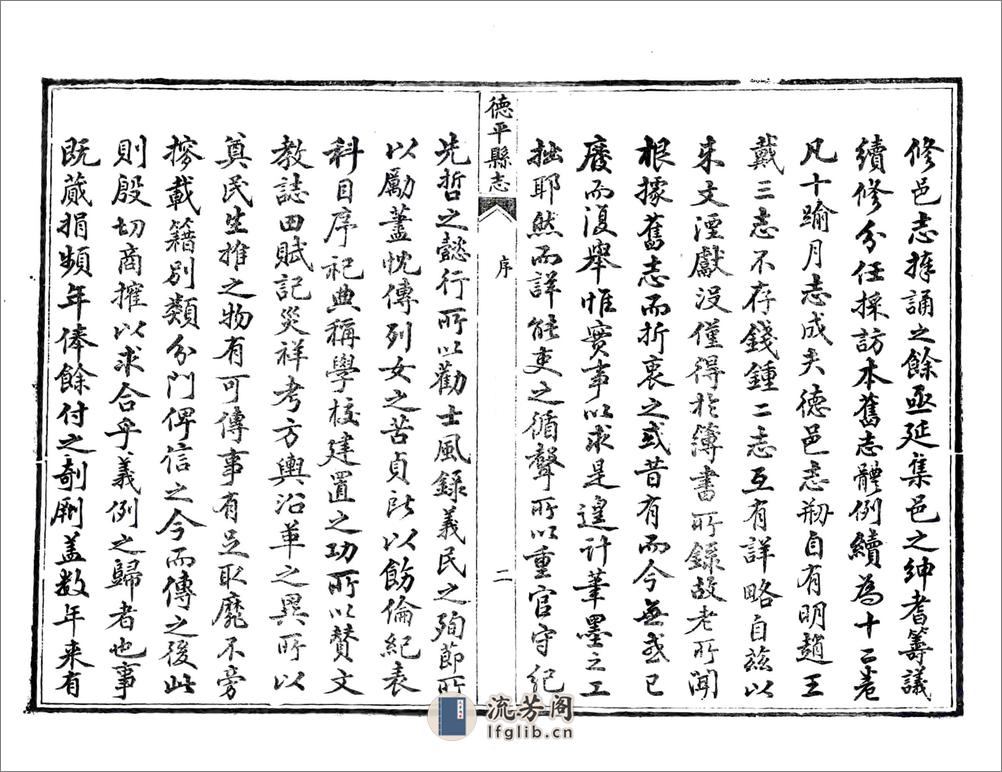 修邑志捧誦之餘亟延集邑之紳耆籌議
續修分任採訪本舊志體例續為十二卷
凡十踰月志成夫德邑志剏自有明趙王
戴三志不存錢鍾二志互有詳略自茲以
来文湮獻没僅得於簿書所錄故老所聞
根據舊志而折衷之或昔有而今無或已
廢而復舉惟實事以求是遑計筆墨之工
拙耶然而詳能吏之循聲所以重官守紀
德平縣志
序
二
先哲之懿行所以勸士風錄義民之殉節所
以勵藎忱傳列女之苦貞所以飭倫紀表
科目序祀典稱學校建置之功所以贊文
教誌田賦記災祥考方輿沿革之異所以
奠民生推之物有可傳事有足取靡不旁
搜載籍別類分門俾信之今而傳之後此
則殷切商搉以求合乎義例之歸者也事
既蕆捐頻年俸餘付之剞劂盖数年来有
流芳阁
lfglib.cn